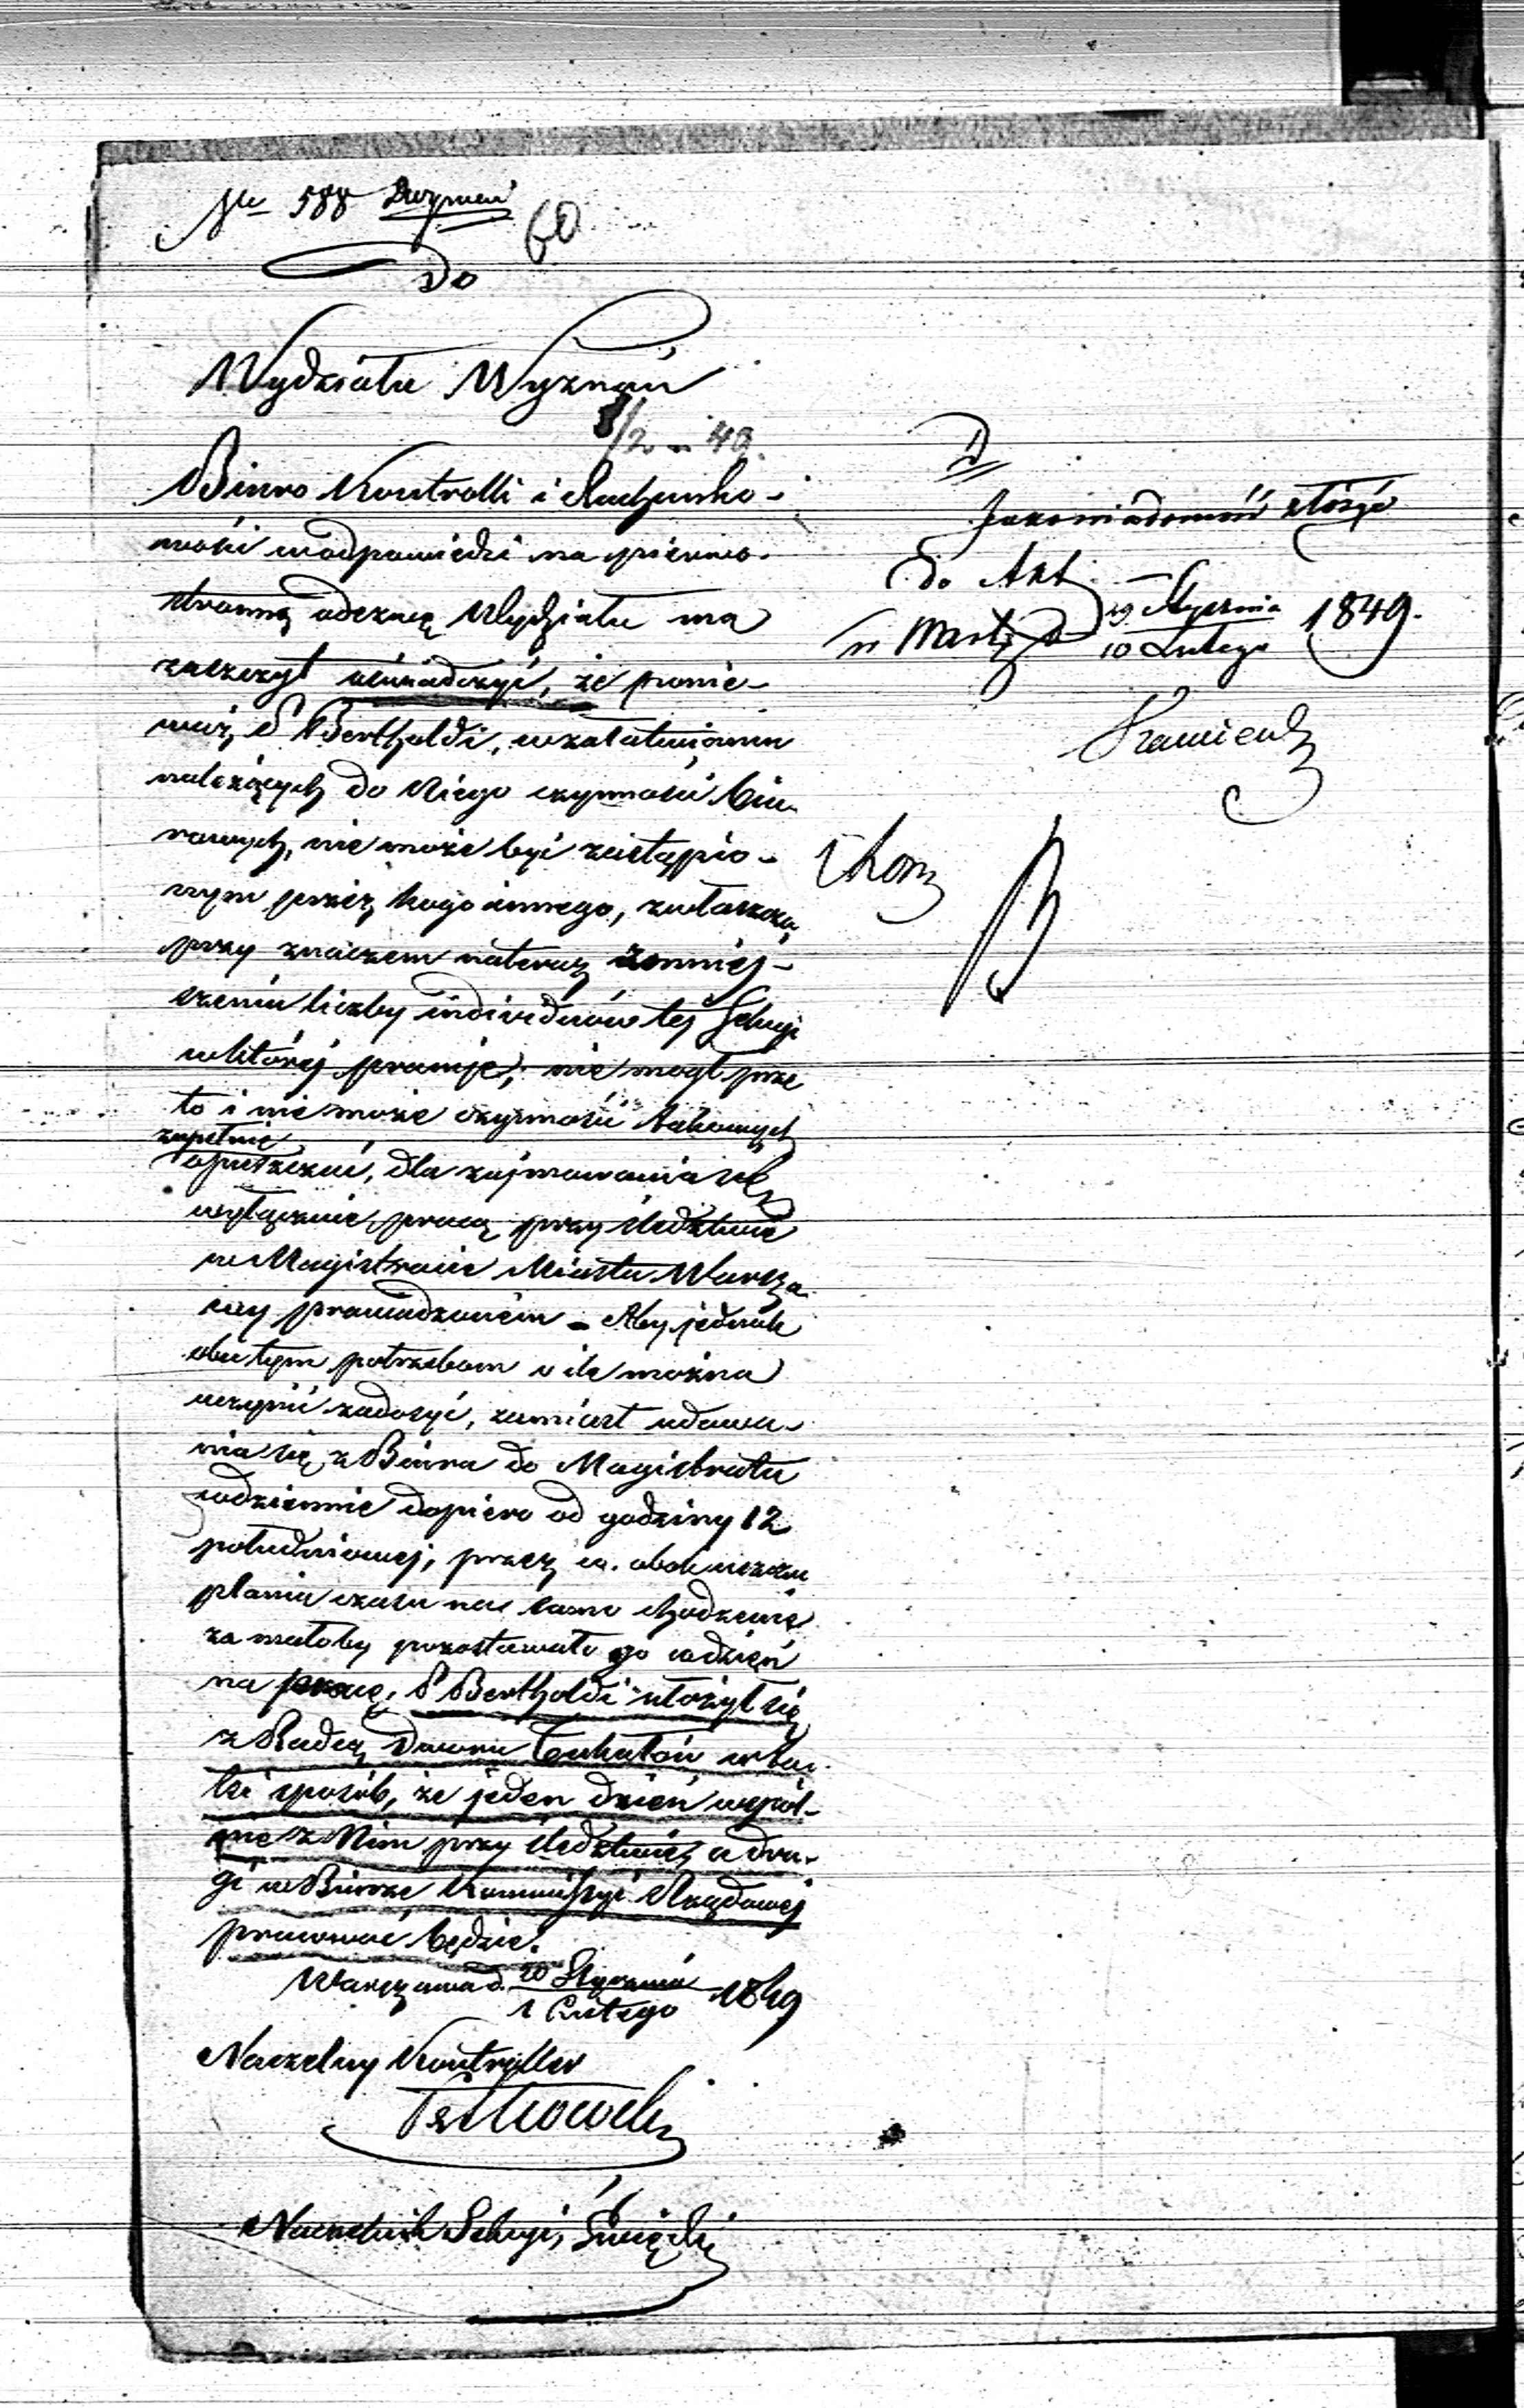 № 588 Wyznań
60
Do
Wydziału Wyznań
8/2 – 49.
Biuro Kontrolli i Rachunko-
wości w odpowiedzi na pierwo-
stronną odezwę Wydziału ma
zaszczyt uświadczyć, że ponie-
waż P Bertholdi, w załatwianiu
należących do Niego czynności biu-
rowych, nie może być zastąpio-
nym przez kogo innego, zwłaszcza
przy znacznem na teraz zmniej-
szeniu liczby individuów tej Sekcyi
w której pracuje; nie mógł prze
to i nie może czynności takowych
zupełnie
opuszczać, dla zajmowania się
wyłącznie pracą przy śledztwie
w Magistracie Miasta Warsza
wy prowadzonem – Aby jednak
obu tym potrzebom o ile można
uczynić zadosyć, zamiast udawa-
nia się z Biura do Magistratu
codziennie dopiero od godziny 12
południowej, przez co obok uszczu
plania czasu na samo chodzenie
za małoby pozostawało go co dzień
na pracę, P Bertholdi ułożył się
z Radcą Dworu w ta-
ki sposób, że jeden dzień wspól-
nie z Nim przy śledztwie, a dru-
gi w Biórze Kommissyi Rządowej
pracować będzie.
Warszawa d. 20 Stycznia
1 Lutego 1849
Naczelny Kontroller
Naczelnik Sekcyi,
Jako wiadomość złożyć
do Akt
w Warsz d 29 Stycznia
10 Lutego 1849.